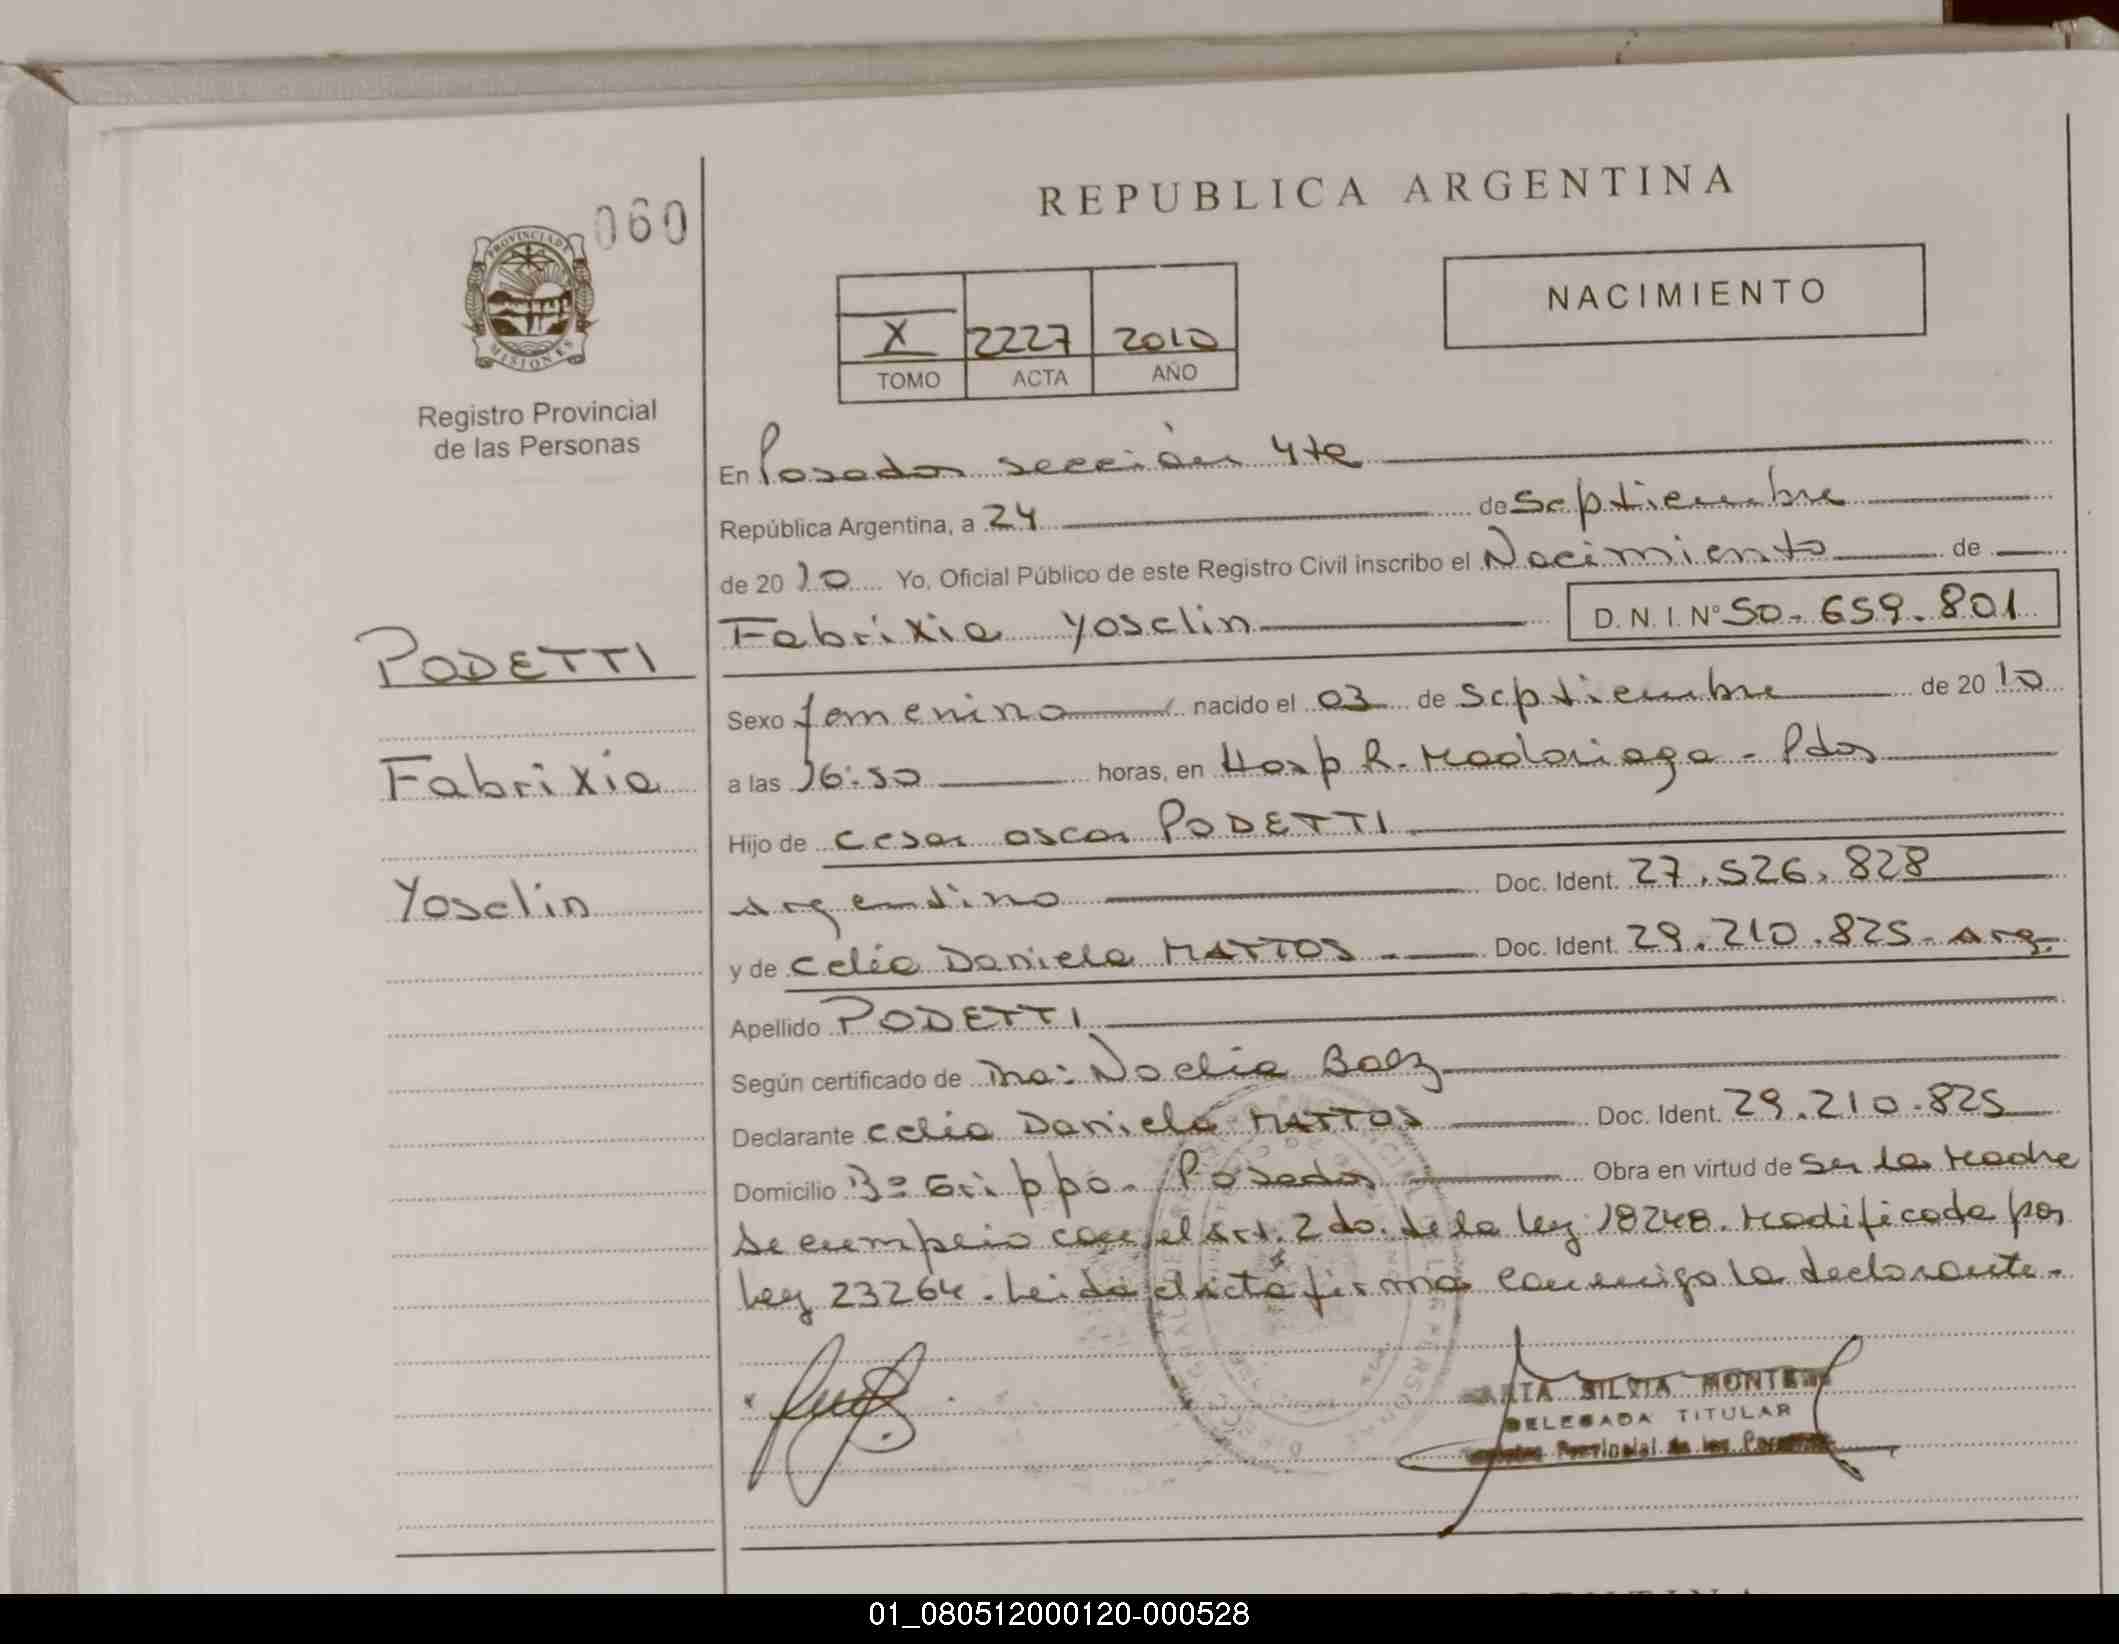 REPUBLICA ARGENTINA
060
PROVINCIA DE
MISIONES
Registro Provincial
de las Personas
NACIMIENTO
X 2227 2010
TOMO ACTA AÑO
En Posadas sección 4ta
República Argentina, a 24 de Septiembre
de 2010 Yo, Oficial Público de este Registro Civil inscribo el Nacimiento de
Fabrixia Yoselin D.N.I. Nº 50.659.801
PODETTI
Fabrixia
Yoselin
Sexo femenino nacido el 03 de Septiembre de 2010
a las 16:50 horas, en Hosp R. Madariaga - Pdas
Hijo de Cesar Oscar PODETTI
Argentino Doc. Ident. 27.526.828
y de Celia Daniela MATTOS Doc. Ident. 29.210.825 - Arg.
Apellido PODETTI
Según certificado de Dra: Noelia Baez
Declarante Celia Daniela MATTOS Doc. Ident. 29.210.825
Domicilio Bº Grippo - Posadas Obra en virtud de Ser la Madre
Se cumplio con el Art. 2do. de la ley 18248. Modificada por
Ley 23264. Leida el acta firma conmigo la declarante.
SILVIA MONTE
DELEGADA TITULAR
Provincial de las
01_080512000120-000528